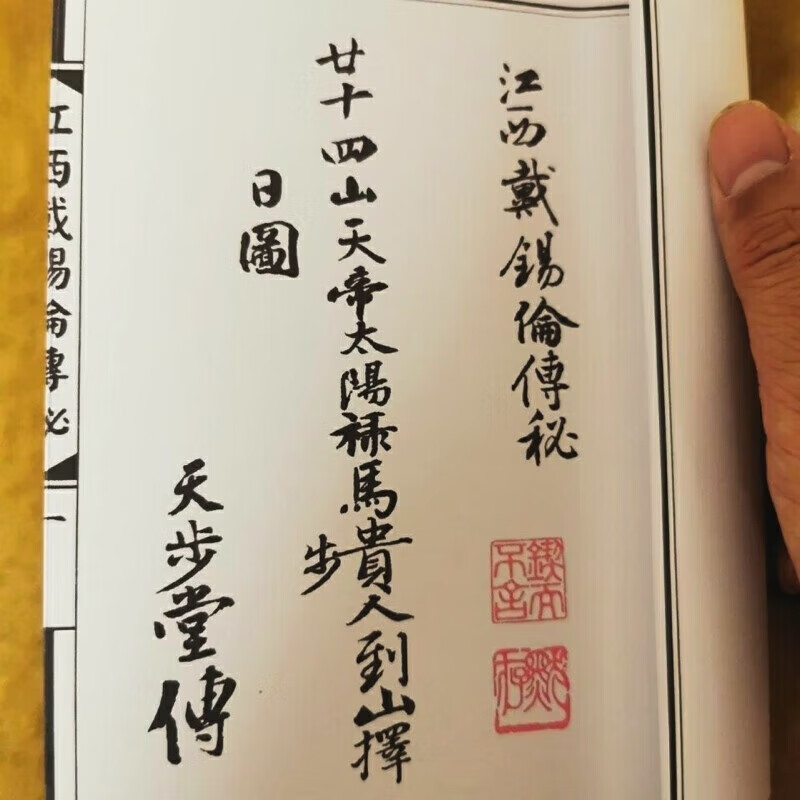 江西戴錫倫傳秘
廿十四山天帝太陽祿馬貴人到山擇
步
日圖
天步堂傳
江西戴錫倫傳秘
一
鍥而不舍